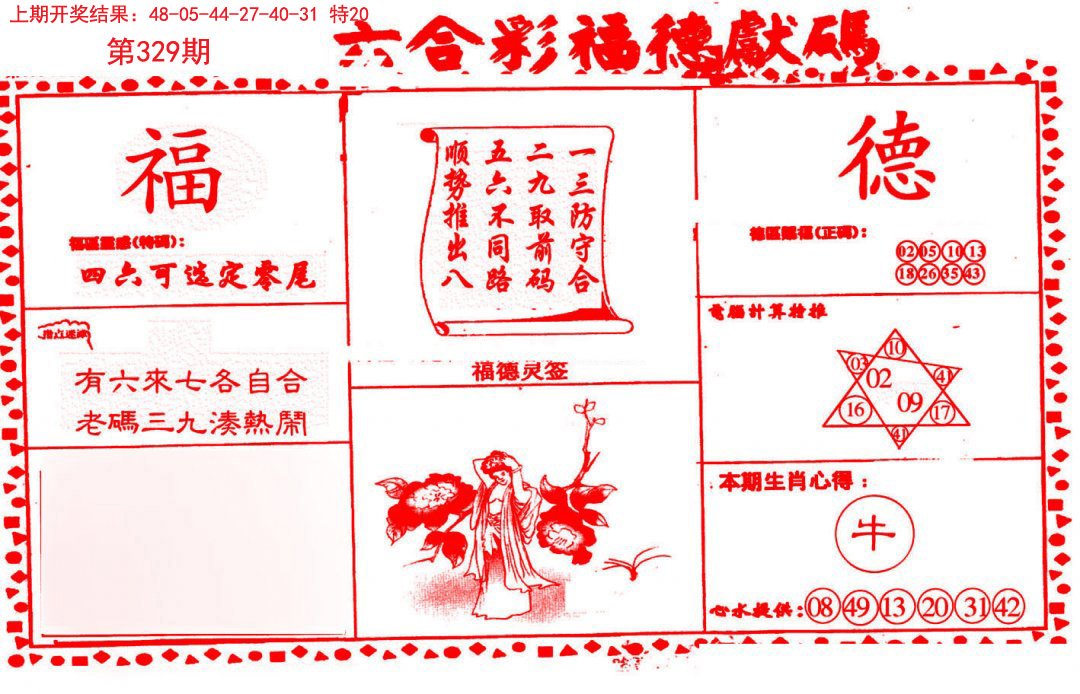 上期开奖结果：48-05-44-27-40-31 特20
第329期
六合彩福德獻碼
福
福區靈感(特碼)：
四六可选定零尾
有六來七各自合
老碼三九湊熱鬧
一三防守合
二九取前码
五六不同路
顺势推出八
福德灵签
德
德區賜福(正碼)：
02 05 10 13
18 26 35 43
電腦計算特推
10
03
02
41
16
09
17
41
本期生肖心得：
牛
心水提供：08 49 13 20 31 42